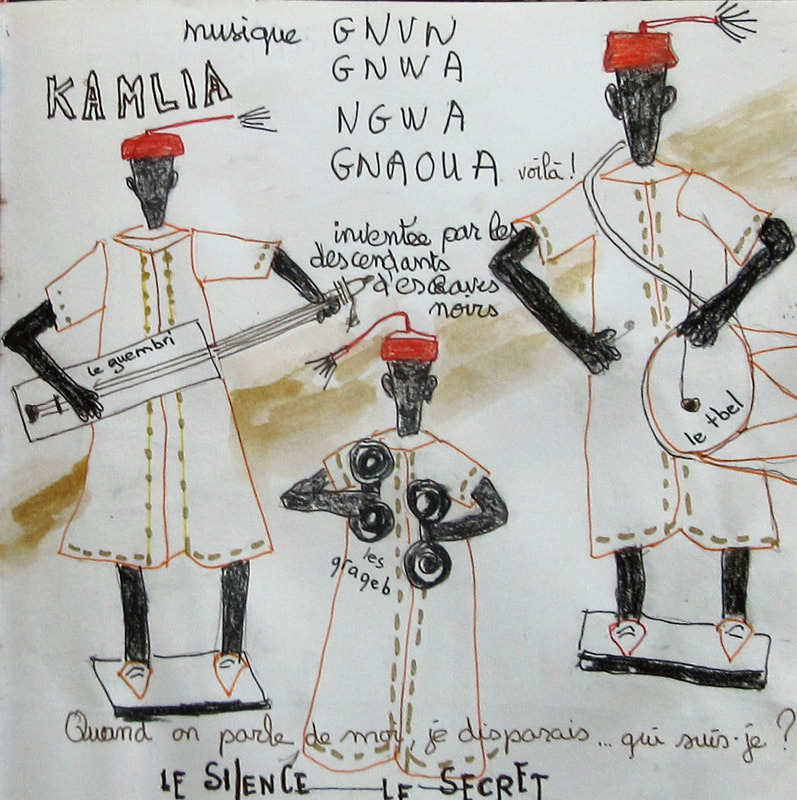 musique GNVN
GNWA
KAMLIA
NGWA
GNAOUA voilà!
inventée par les
descendants
d'esclaves
noirs
le guembri
le tbel
les
grageb
Quand on parle de moi, je disparais... qui suis-je ?
LE SILENCE LE SECRET